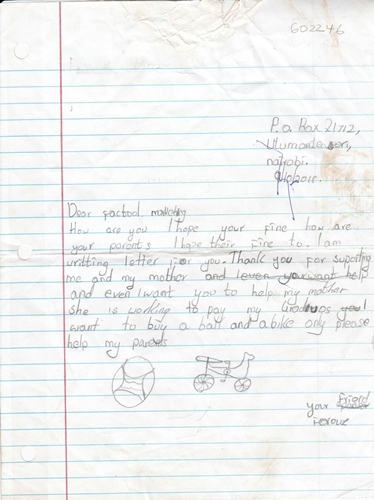 602246
P.o. Box 21712,
nairobi.
Dear factool matching
How are you I hope your fine how are
your parents I hope their fine to. I am
writting letter for you. Thank you for suporting
me and my mother and even you want help
and even I want you to help my mother
She is working to pay my you I
want to buy a ball and a bike only please
help my parents
your friend